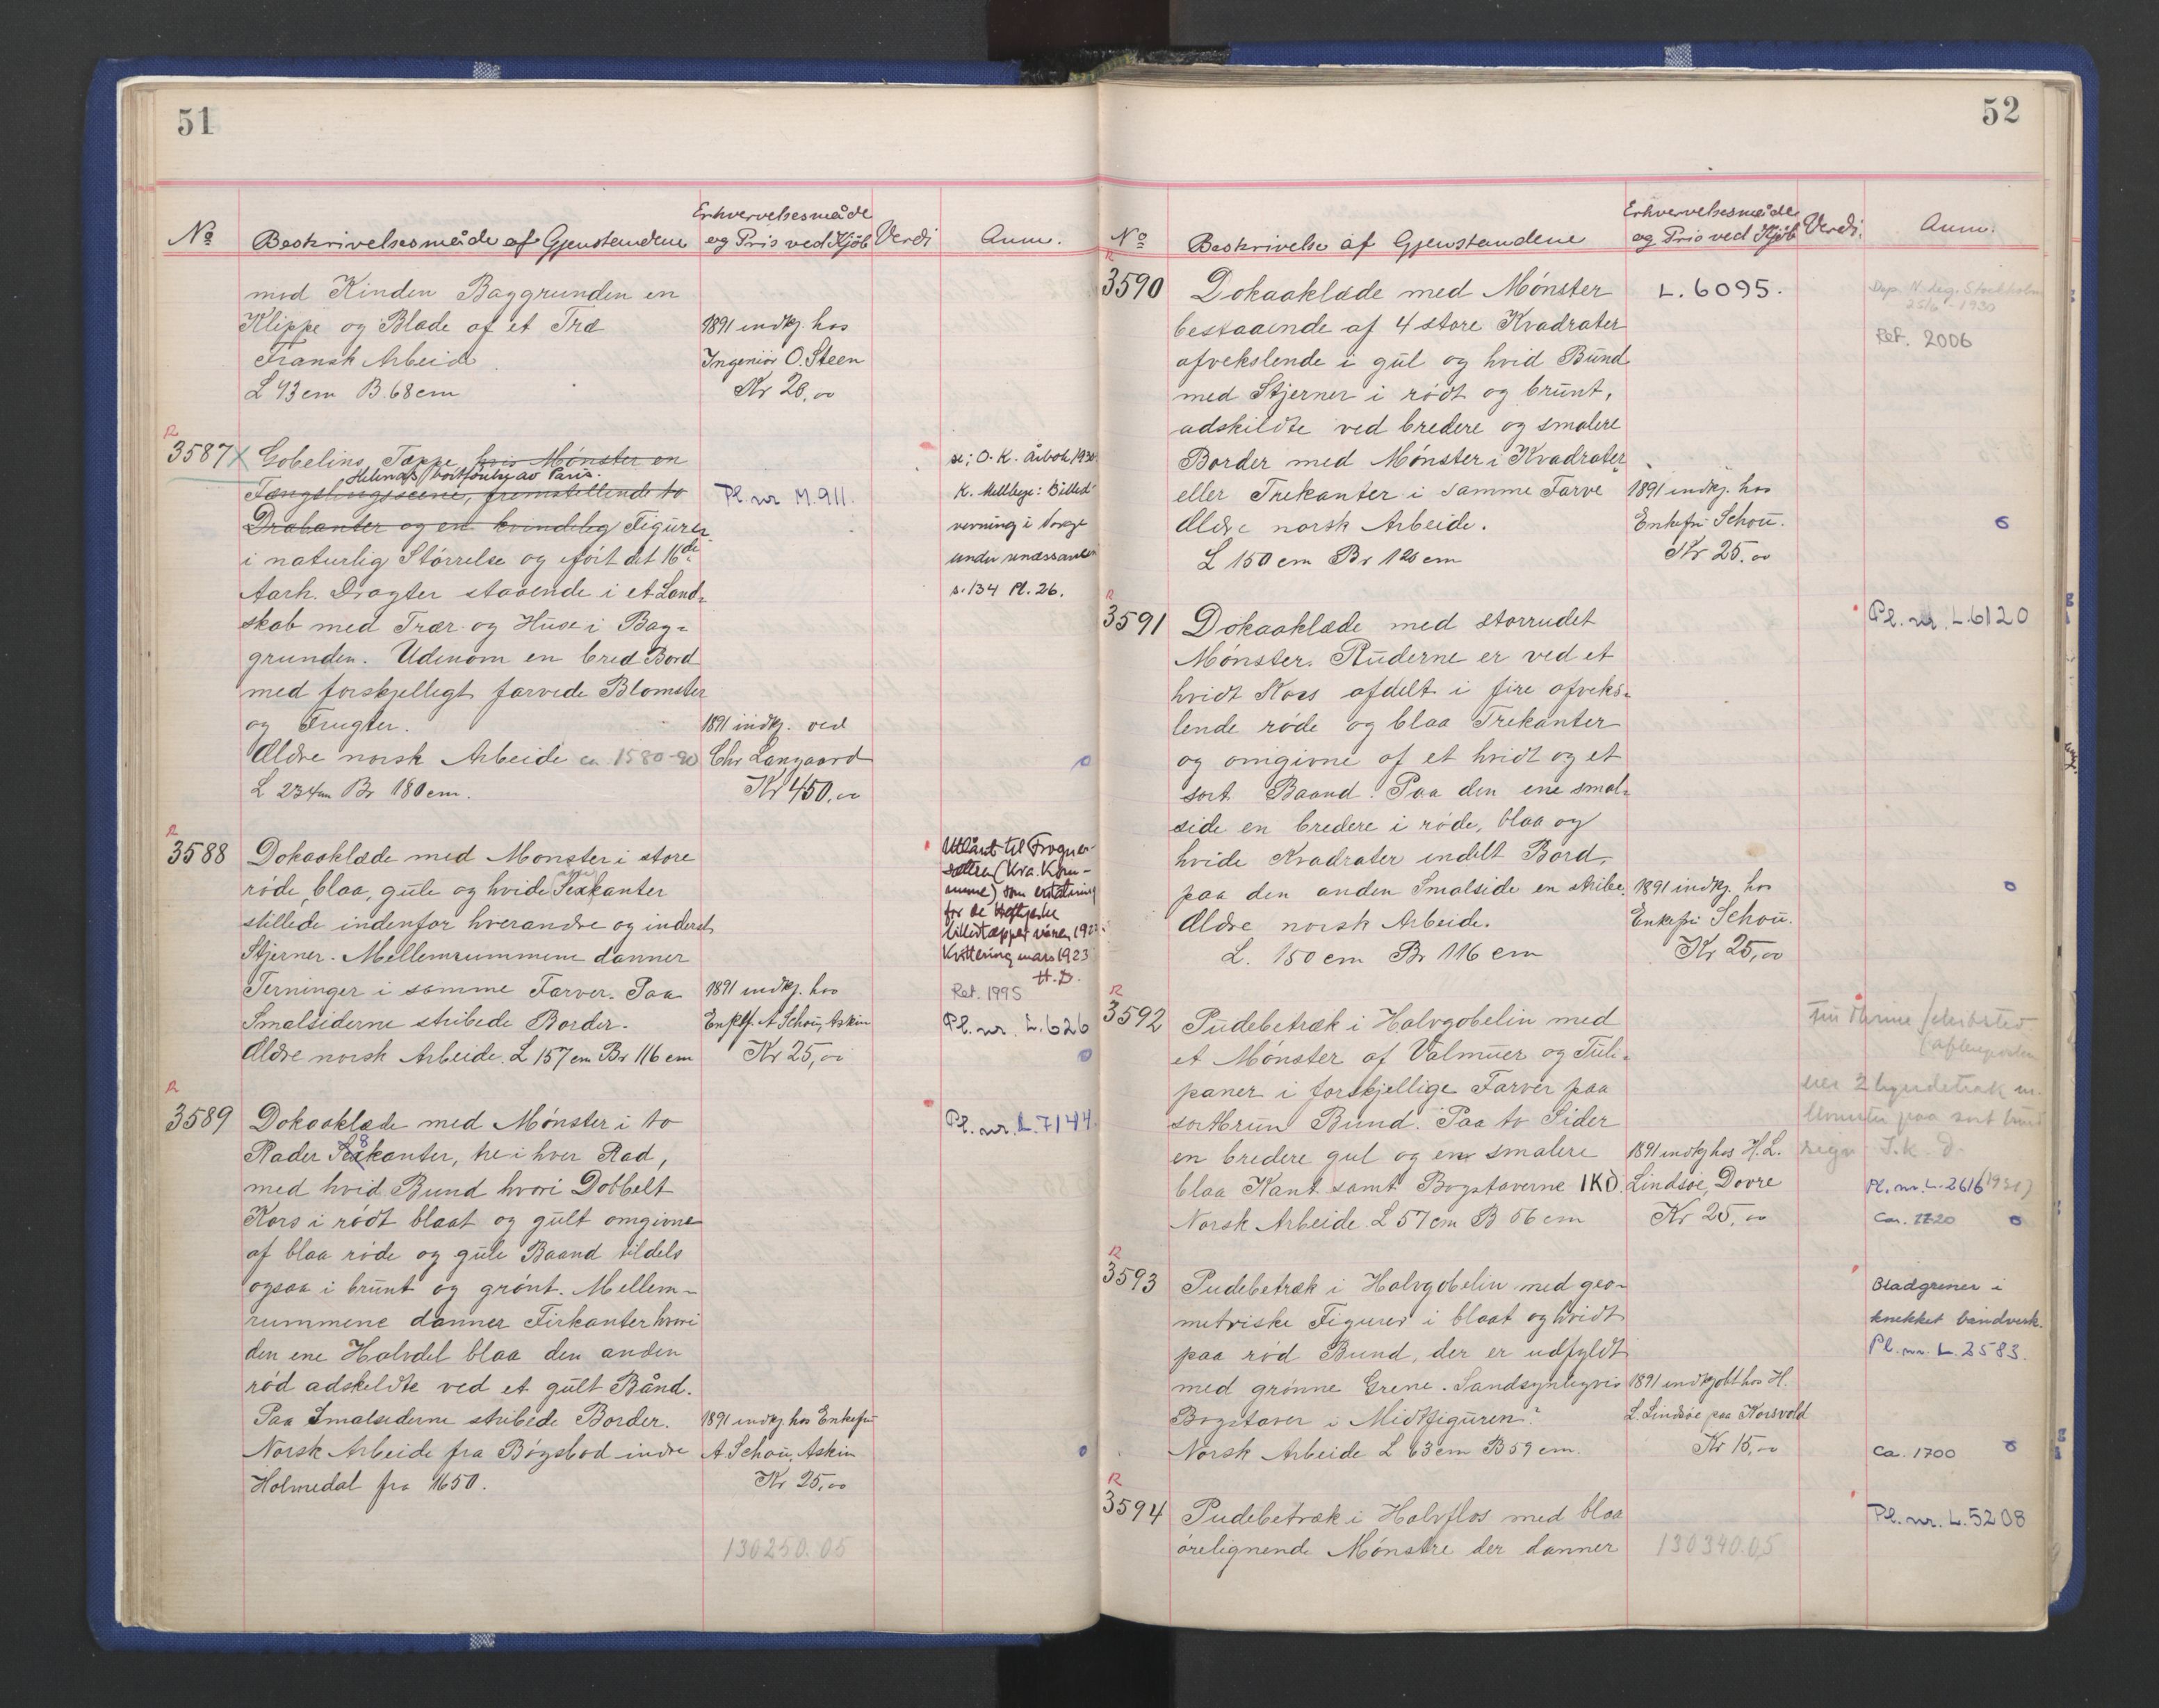 51
No
Beskrivelsesmåde af Gjenstandene
Erhvervelsesmåde
og Pris ved Kjöb
Verdi
Anm.
mod Kinden Baggrunden en
Klippe og Blade af et Træ
Fransk Arbeid
L 43 cm B. 68 cm
1891 indkj. hos
Ingeniör O. Steen
Kr 20,00
R
3587 x
Gobelins Tæppe hvis Mönster en
Helenas bortförelse av Paris.
Fængslingsscene, fremstillende to
Drabanter og en kvindelig Figurer
i naturlig Störrelse og iført det 16de
Aarh. Dragter staaende i et Land-
skab med Trær og Huse i Bag-
grunden. Udenom en bred Bord
med forskjelligt farvede Blomster
og Frugter.
Ældre norsk Arbeide ca 1580-90
L 234 cm Br 180 cm.
Pl. nr M.911.
1891 indkj. ved
Chr Langaard
Kr 450,00
se; O. K. Årbok 1930
K. Mellbye: Billed-
vevning i Norge
under renæssansen
s. 134 Pl. 26.
R
3588
Dokaaklæde med Mønster i store
röde, blaa, gule og hvide Sexkanter
stillede indenfor hverandre og inderst
Stjerner. Mellemrummene danner
Terninger i samme Farver. Paa
Smalsiderne stribede Border.
Ældre norsk Arbeide. L 157 cm Br 116 cm
1891 indkj. hos
Enkefr. A Schou, Askim
Kr 25,00
Utlånt til Frogner-
sæteren (Kra. Kom-
mune) som erstatning
for de Heftyeske
billedtæpper våren 1923.
Kvittering mars 1923
H.D.
Ret. 1995
Pl. nr. L. 626
R
3589
Dokaaklæde med Mönster i to
Rader 8kanter, tre i hver Rad,
med hvid Bund hvori Dobbelt
Kors i rödt blaat og gult omgivne
af blaa röde og gule Baand tildels
ogsaa i brunt og grönt. Mellem-
rummene danner Firkanter hvori
den ene Halvdel blaa den anden
röd adskildte ved et gult Bånd.
Paa Smalsiderne stribede Border.
Norsk Arbeide fra Bögsbod indre
Holmedal fra 1650.
1891 indkj. hos Enkefru
A Schou, Askim
Kr 25,00
Pl. nr. L. 7144.
130250.05
52
No
Beskrivelse af Gjenstandene
Erhvervelsesmåde
og Pris ved Kjöb
Verdi.
Anm.
R
3590
Dokaaklæde med Mönster
bestaaende af 4 store Kvadrater
afvekslende i gul og hvid Bund
med Stjerner i rödt og brunt,
adskildte ved bredere og smalere
Border med Mönster i Kvadrater
eller Trekanter i samme Farve
Ældre norsk Arbeide.
L 150 cm Br 120 cm
L. 6095.
1891 indkj. hos
Enkefru Schou.
Kr 25.00
Dep. N. leg. Stockholm
25/6 1930
Ret. 2006
R
3591
Dokaaklæde med storrudet
Mönster. Ruderne er ved et
hvidt Kors afdelt i fire afveks-
lende röde og blaa Trekanter
og omgivne af et hvidt og et
sort Baand. Paa den ene smal-
side en bredere i röde, blaa og
hvide Kvadrater indelt Bord,
paa den anden Smalside en stribe.
Ældre norsk Arbeide.
L. 150 cm Br 116 cm
1891 indkj. hos
Enkefru Schou.
Kr 25,00
Pl. nr. L. 6120
R
3592
Pudebetræk i Halvgobelin med
et Mönster af Valmuer og Tuli-
paner i forskjellige Farver paa
sortbrun Bund. Paa to Sider
en bredere gul og en smalere
blaa Kant samt Bogstaverne IKD.
Norsk Arbeide L 57 cm B 56 cm
1891 indkj hos H. L.
Lindsöe, Dovre
Kr 25,00
(Aftenposten
2 hyndetræk m.
blomster paa sort bund
I. K. D.
Pl. nr. L. 2616 (1931)
Ca. 1720
R
3593
Pudebetræk i Halvgobelin med geo-
metriske Figurer i blaat og hvidt
paa röd Bund, der er udfyldt
med grönne Grene. Sandsynligvis
Bogstaver i Midtfiguren?
Norsk Arbeide L 63 cm B 59 cm.
1891 indkjobt hos H.
L. Lindsöe paa Korsvold
Kr 15,00
Bladgrener i
knekket båndverk.
Pl. nr. L. 2583.
Ca. 1700
R
3594
Pudebetræk i Halvflos med blaa
örelignende Mönstre der danner
130340.05
Pl. nr. L. 5208